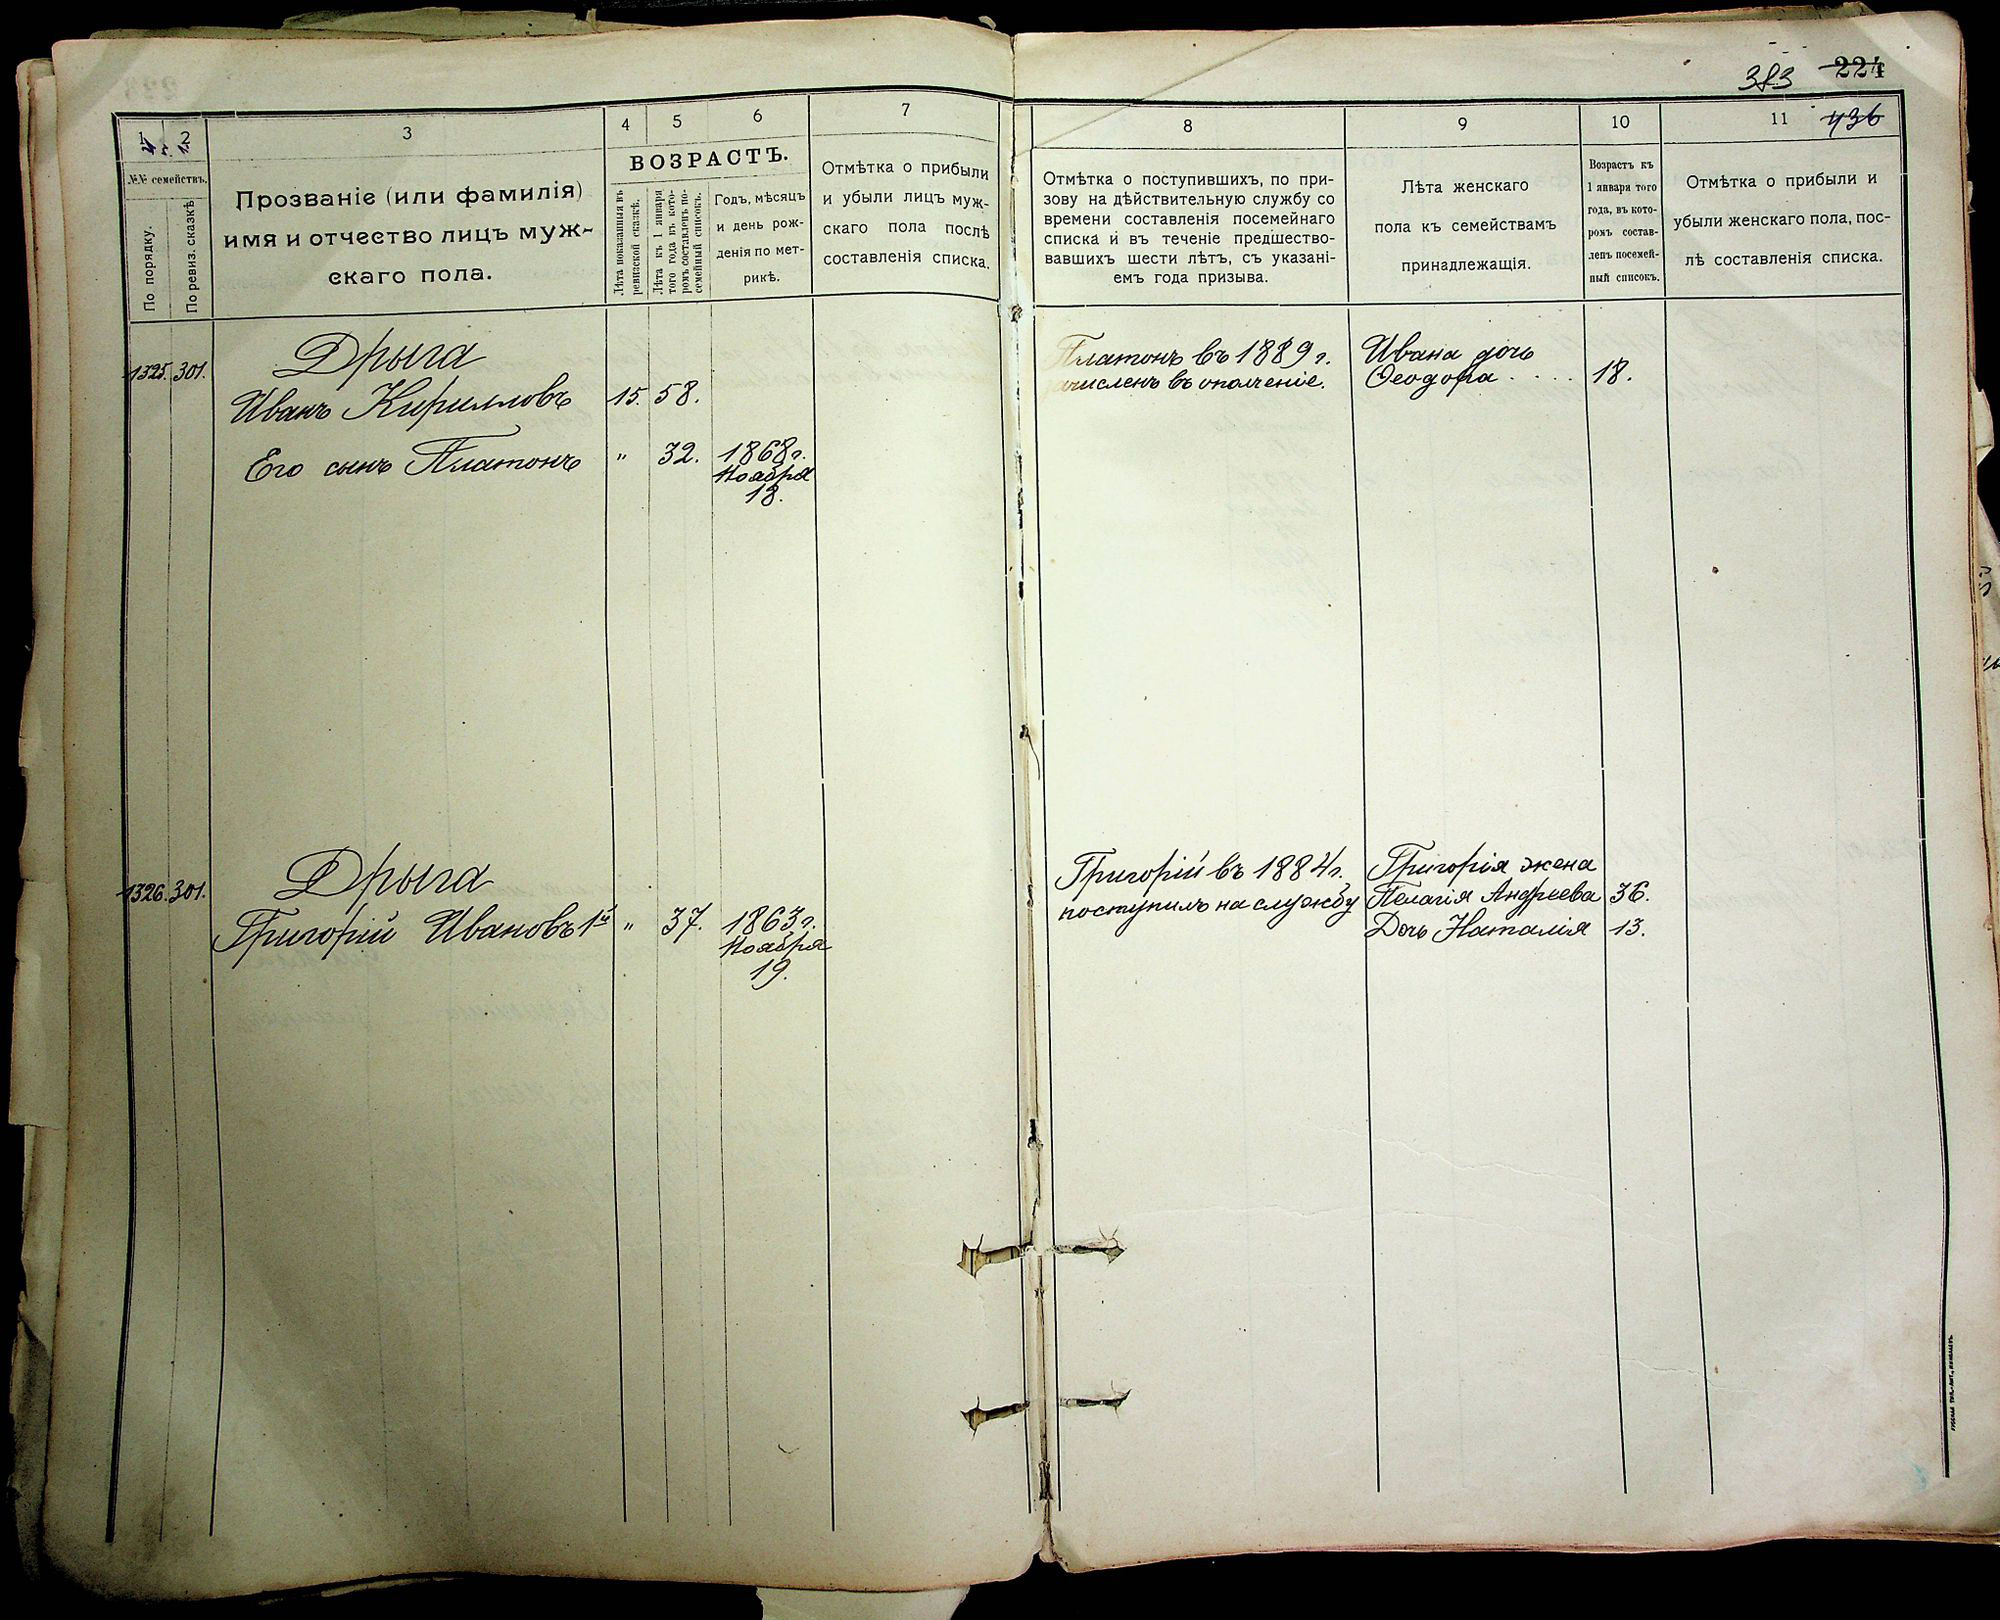 383 224
436
1 2 3 4 5 6 7
№№ семействъ.
По порядку.
По ревиз. сказкѣ
Прозваніе (или фамилія)
имя и отчество лицъ муж-
скаго пола.
ВОЗРАСТЪ.
Лѣта показанныя въ
ревизской сказкѣ.
Лѣта къ 1 января
того года къ кото-
ромъ составленъ по-
семейный списокъ.
Годъ, мѣсяцъ
и день рож-
денія по мет-
рикѣ.
Отмѣтка о прибыли
и убыли лицъ муж-
скаго пола послѣ
составленія списка.
8 9 10 11
Отмѣтка о поступившихъ, по при-
зову на дѣйствительную службу со
времени составленія посемейнаго
списка и въ теченіе предшество-
вавшихъ шести лѣтъ, съ указані-
емъ года призыва.
Лѣта женскаго
пола къ семействамъ
принадлежащія.
Возрастъ къ
1 января того
года, въ кото-
ромъ состав-
ленъ посемей-
ный списокъ.
Отмѣтка о прибыли и
убыли женскаго пола, пос-
лѣ составленія списка.
1325. 301. Дрыга
Иванъ Кирилловъ 15. 58.
Его сынъ Платонъ " 32. 1868 г.
Ноября
18.
Платонъ въ 1889 г.
зачисленъ въ ополченіе.
Ивана дочь
Ѳеодора . . . . 18.
1326. 301. Дрыга
Григорій Ивановъ 1й " 37. 1863 г.
Ноября
19.
Григорій въ 1884 г.
поступилъ на службу
Григорія жена
Пелагія Андреева 36.
Дочь Наталія 13.